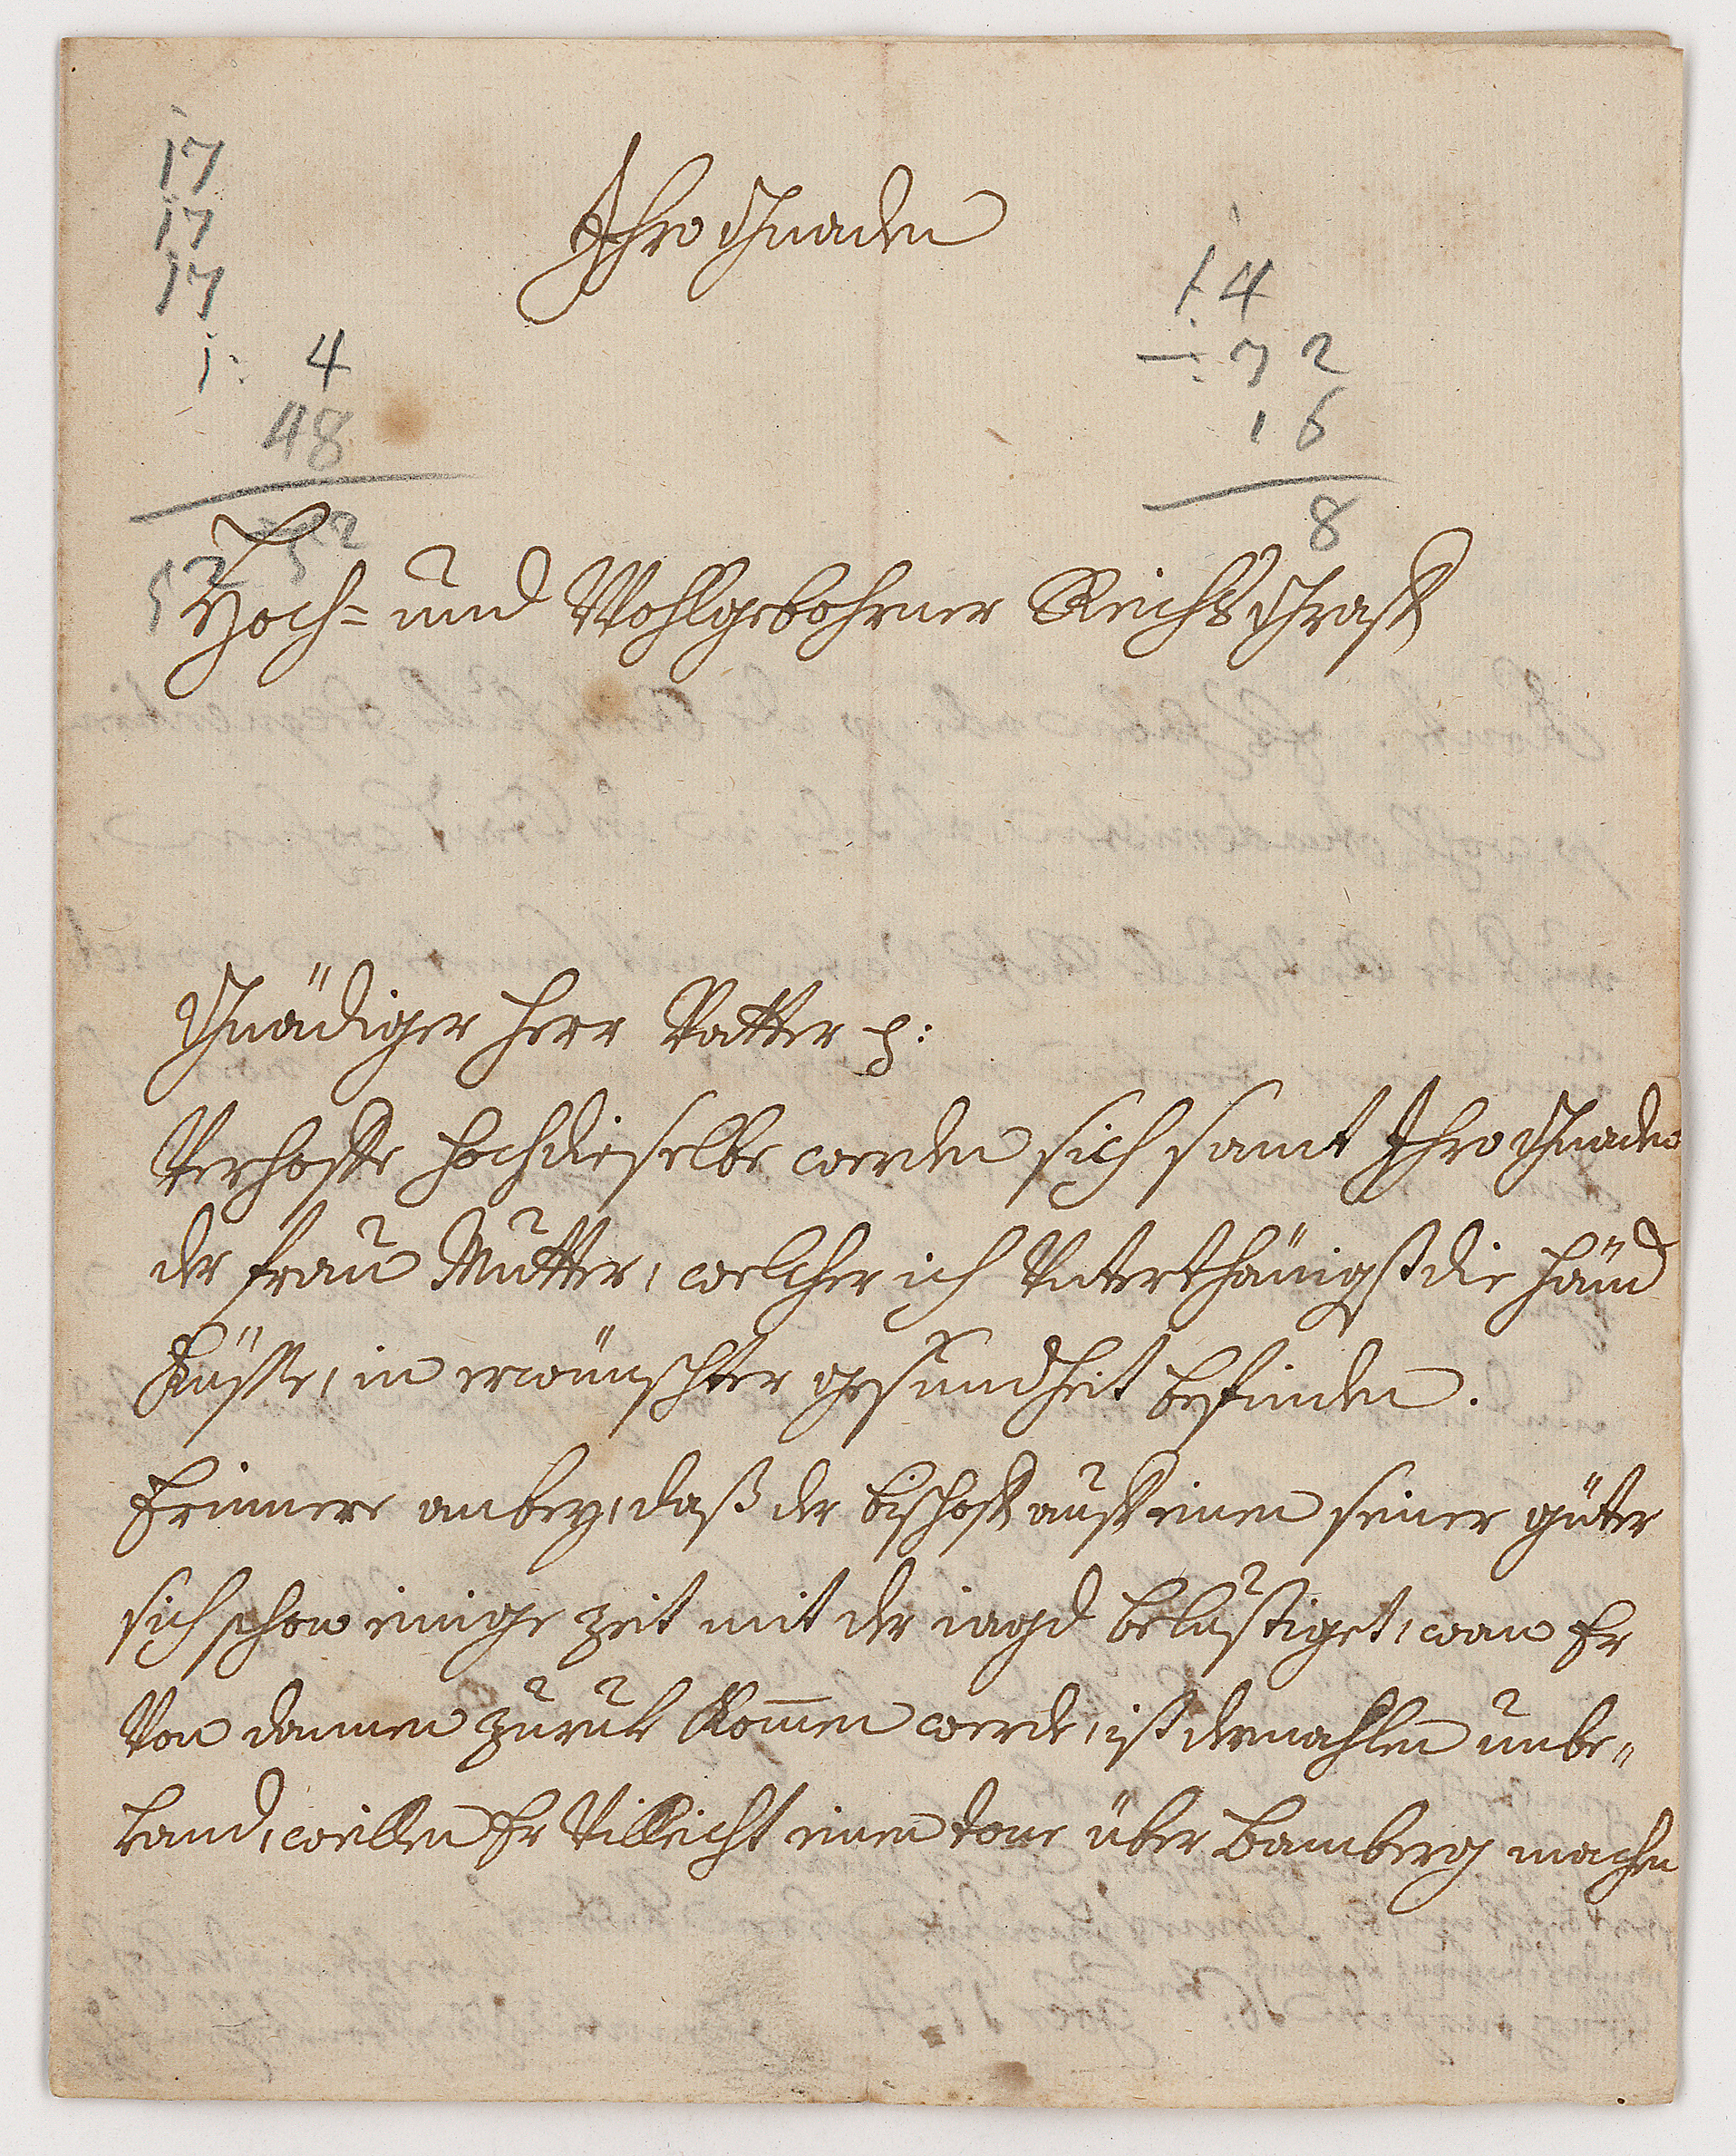 17
17
17
1: 4
48
52
52
14
72
16
8
Ihro Gnaden
Hoch= und Wohlgebohrner Reichs Graff
Gnädiger Herr Vatter
Verhoffe hochdieselbe werden sich samt Ihro Gnaden
der frau Mutter, welcher ich Unterthänigst die händ
Küsse, in erwünschter gesundheit befinden.
Erinnere anbey, daß der bischoff auff einen seiner güter
sich schon einige zeit mit der iagd belustiget, wan Er
Von dannen zuruk Kom̄en werde, ist dermahlen unbe„
kand, weillen Er Villeicht einen tour über Bamberg machen